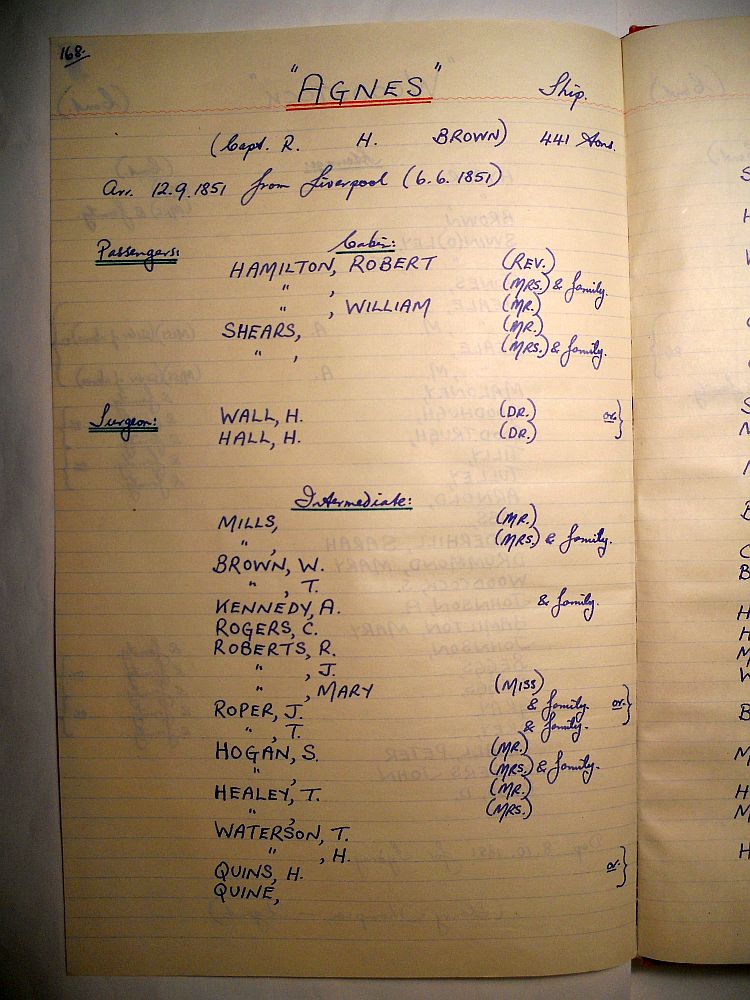 168.
"AGNES" Ship.
(Capt. R. H. BROWN) 441 tons.
Arr. 12.9.1851 from Liverpool (6.6.1851)
Passengers: Cabin:
HAMILTON, ROBERT (REV.)
" , (MRS.) & family.
" , WILLIAM (MR.)
SHEARS, (MR.)
" , (MRS.) & family.
Surgeon: WALL, H. (DR.) or. }
HALL, H. (DR.)
Intermediate:
MILLS, (MR.)
" , (MRS.) & family.
BROWN, W.
" , T.
KENNEDY, A. & family.
ROGERS, C.
ROBERTS, R.
" , J.
" , MARY (MISS)
ROPER, J. & family. or. }
" , T. & family.
HOGAN, S. (MR.)
" , (MRS.) & family.
HEALEY, T. (MR.)
" , (MRS.)
WATERSON, T.
" , H.
QUINS, H. or. }
QUINE,